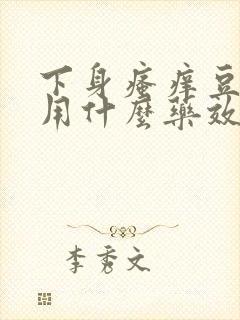 下身瘙痒豆
用什麼藥效
李秀文